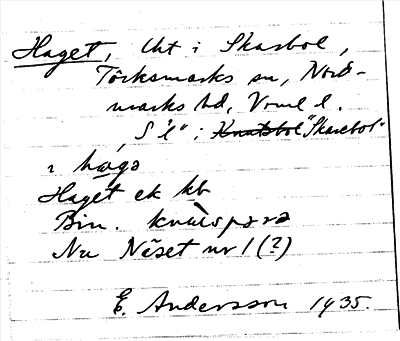 Haget, Ut i Skarbol,
Töcksmarks sn, Nord-
marks hd, Vrml l.
S l" i Knatsbol "Skarebol"
i haga
Haget ek kb
Bin. kvarnpara
Nu Näset nr 1 (?)
E. Andersson 1935.